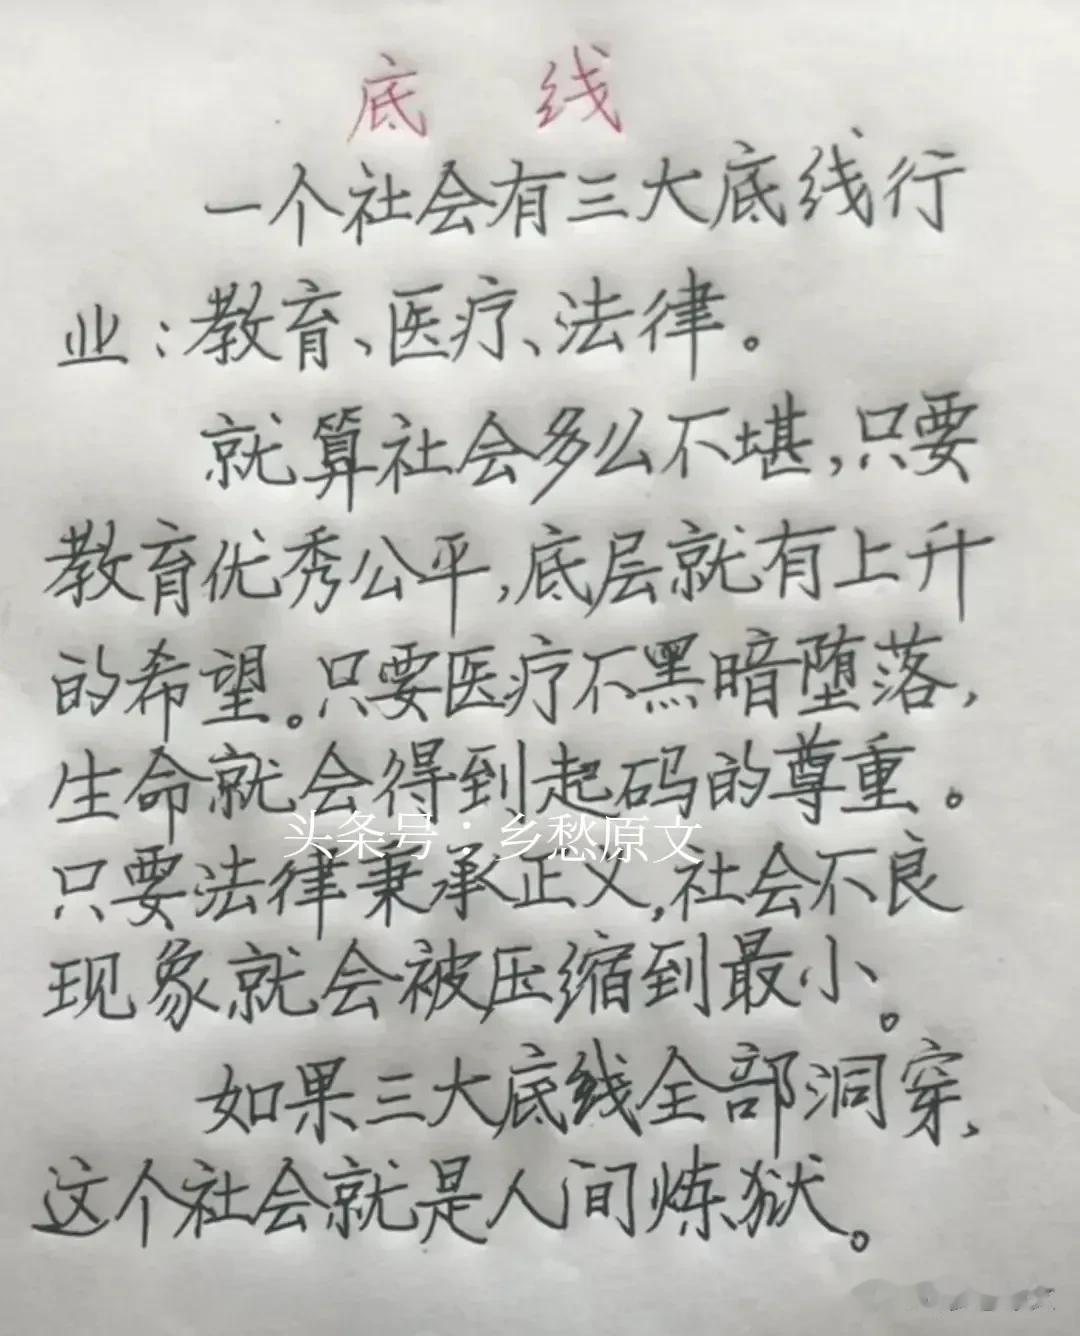 底 线
一个社会有三大底线行
业:教育、医疗、法律。
就算社会多么不堪,只要
教育优秀公平,底层就有上升
的希望。只要医疗不黑暗堕落,
生命就会得到起码的尊重。
头条号:乡愁原文
只要法律秉承正义,社会不良
现象就会被压缩到最小。
如果三大底线全部洞穿,
这个社会就是人间炼狱。